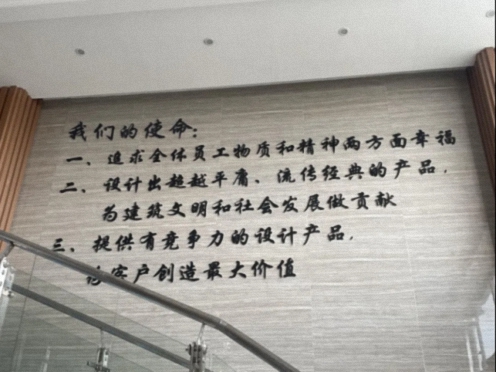 我们的使命:
一、追求全体员工物质和精神两方面幸福
二、设计出超越平庸、流传经典的产品,
为建筑文明和社会发展做贡献
三、提供有竞争力的设计产品,
为客户创造最大价值